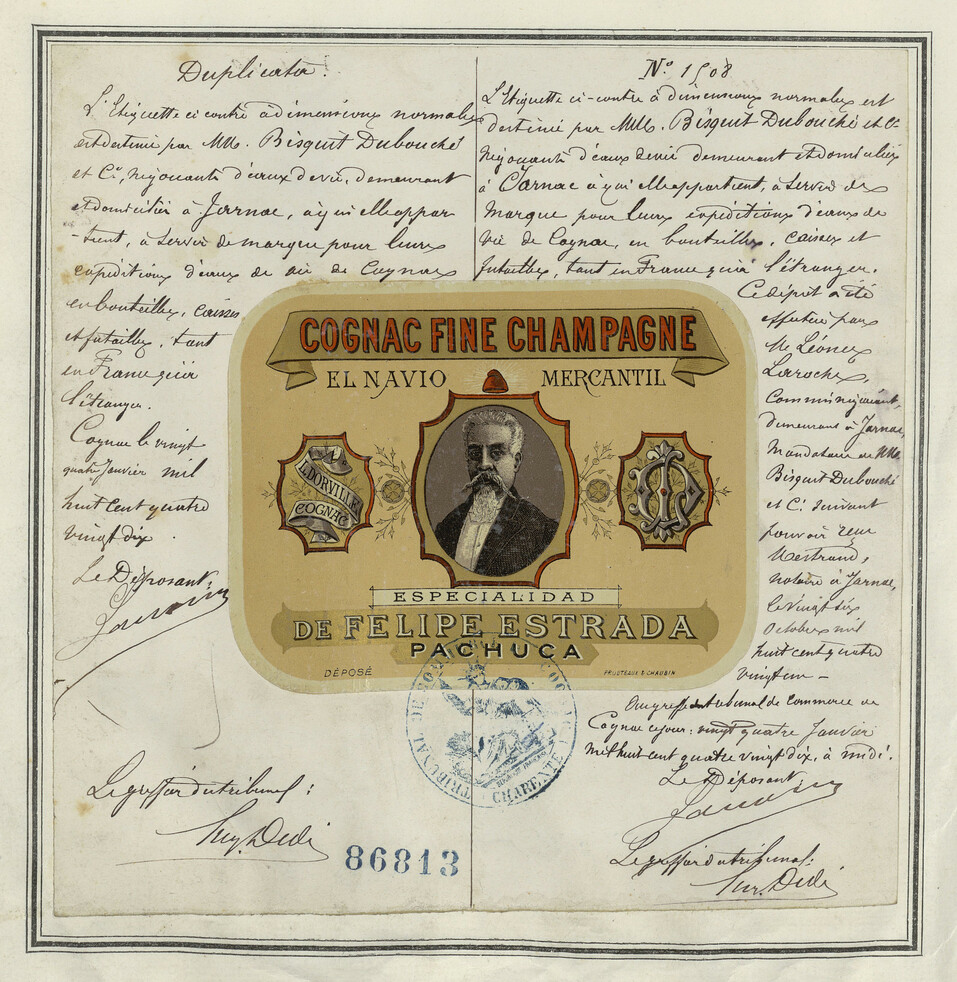 Duplicata.
L'Etiquette ci contre à dimensions normales
est destinée par MM. Bisquit Dubouché
et Cie, négociants d'eaux de vie, demeurant
et domiciliés à Jarnac, à qui elle appar
-tient, à servir de marque pour leurs
expéditions d'eaux de vie de Cognac
en bouteilles, caisses
et futailles, tant
en France qu'à
l'étranger.
Cognac le vingt
quatre Janvier mil
huit cent quatre
vingt dix.
Le Déposant:
Le greffier du tribunal:
86813
No 1508
L'Etiquette ci-contre à dimensions normales est
destinée par MM. Bisquit Dubouché et Cie
négociants d'eaux de vie demeurant et domiciliés
à Jarnac à qui elle appartient, à servir de
marque pour leurs expéditions d'eaux de
vie de Cognac, en bouteilles, caisses et
futailles, tant en France qu'à l'étranger.
Ce dépôt a été
effectué par
Mr Léonce
Laroche,
Commis négociant,
demeurant à Jarnac,
Mandataire de MM.
Bisquit Dubouché
et Cie suivant
pouvoir reçu
notaire à Jarnac,
le vingt six
Octobre mil
huit cent quatre
vingt un -
Au greffe du tribunal de Commerce de
Cognac ce jour: vingt quatre Janvier
mil huit cent quatre vingt dix, à midi.
Le Déposant
Le greffier du tribunal:
COGNAC FINE CHAMPAGNE
EL NAVIO MERCANTIL
L. DORVILLE
COGNAC
LD
ESPECIALIDAD
DE FELIPE ESTRADA
PACHUCA
DÉPOSÉ
PROUTEAUX & CHAUBIN
TRIBUNAL DE COMMERCE COGNAC
CHARENTE